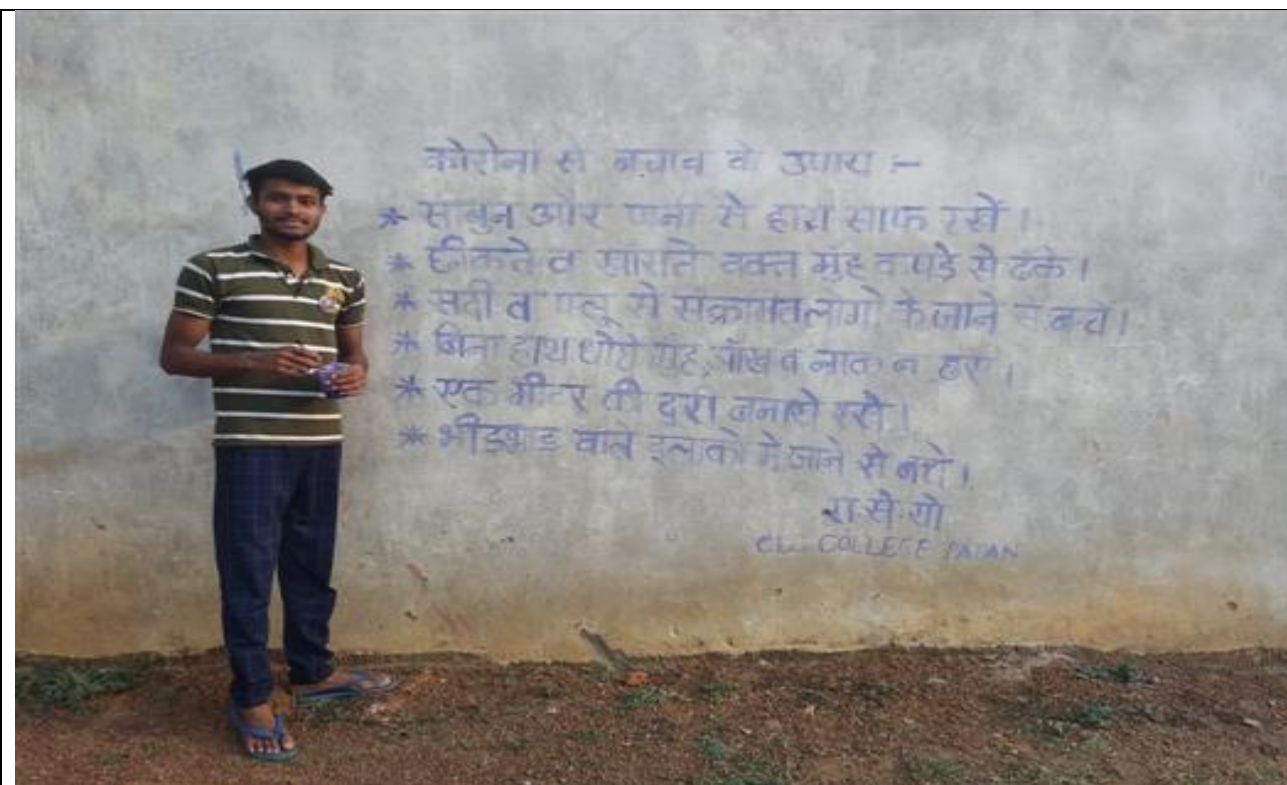 कोरोना से बचाव के उपाय :-
* साबुन और पानी से हाथ साफ रखें।
* छीकते व खासते वक्त मुंह कपडे से ढंके।
* सर्दी व फ्लू से संक्रामितलोगो के जाने से बचे।
* बिना हाथ धोये मुंह, आँख व नाक न छुए।
* एक मीटर की दुरी बनाले रखे।
* भीडभाड वाले इलाको मे जाने से बचे।
रा.से.यो
COLLEGE PATAN